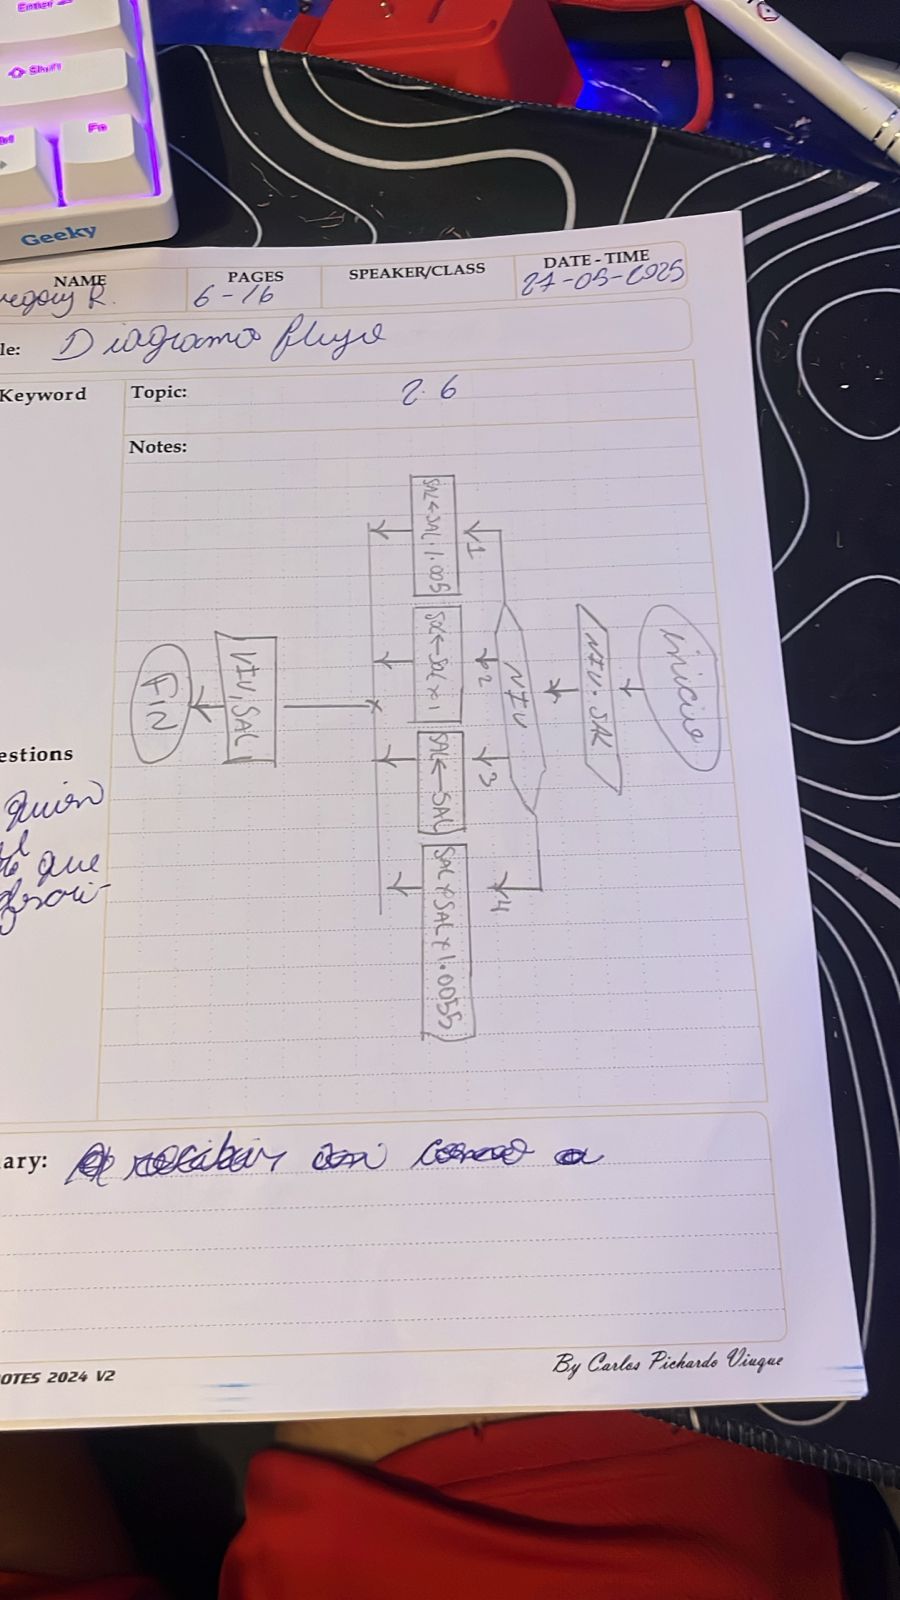 Enter
Shift
Fn
Geeky
NAME
PAGES
SPEAKER/CLASS
DATE - TIME
regory R.
6 - 16
27-05-2025
le:
Diagramo flujo
Keyword
Topic:
2.6
Notes:
Inicio
NIV. SAL
NIV
1
2
3
4
SAL←SAL.1.005
SAL←SAL x 1
SAL←SAL
SAL x 1.0055
NIV, SAL
FIN
estions
quien
que
ary:
OTES 2024 V2
By Carlos Pichardo Viuque